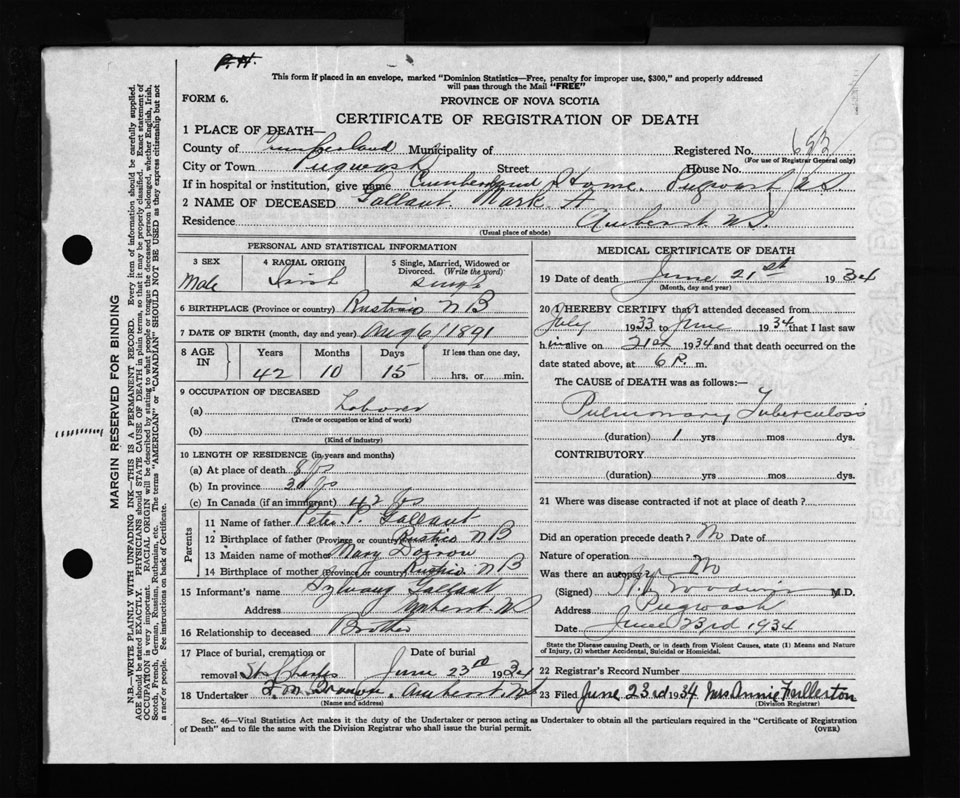 P.H.
This form if placed in an envelope, marked "Dominion Statistics—Free, penalty for improper use, $300," and properly addressed
will pass through the Mail "FREE"
FORM 6.
PROVINCE OF NOVA SCOTIA
CERTIFICATE OF REGISTRATION OF DEATH
1 PLACE OF DEATH—
County of Cumberland Municipality of Registered No. 653
(For use of Registrar General only)
City or Town Pugwash Street House No.
If in hospital or institution, give name Cumberland Home. Pugwash N.S.
2 NAME OF DECEASED Gallant. Mark. A
Residence Amherst. N.S.
(Usual place of abode)
PERSONAL AND STATISTICAL INFORMATION
3 SEX Male
4 RACIAL ORIGIN Irish
5 Single, Married, Widowed or Divorced. (Write the word) Single
6 BIRTHPLACE (Province or country) Rustico N B
7 DATE OF BIRTH (month, day and year) Aug 6/1891
8 AGE IN Years Months Days If less than one day,
42 10 15 hrs. or min.
9 OCCUPATION OF DECEASED
(a) Laborer
(Trade or occupation or kind of work)
(b)
(Kind of industry)
10 LENGTH OF RESIDENCE (in years and months)
(a) At place of death 8 yrs
(b) In province 30 yrs
(c) In Canada (if an immigrant) 42 yrs
Parents
11 Name of father Peter P. Gallant
12 Birthplace of father (Province or country) Rustico N B
13 Maiden name of mother Mary
14 Birthplace of mother (Province or country) Rustico N B
15 Informant's name Gallant
Address Amherst. N
16 Relationship to deceased Brother
17 Place of burial, cremation or Date of burial
removal St. Charles June 23rd 1934
18 Undertaker F. M. Brown. Amherst. NS
(Name and address)
MEDICAL CERTIFICATE OF DEATH
19 Date of death June 21st 1934
(Month, day and year)
20 I HEREBY CERTIFY that I attended deceased from
July 1933 to June 1934 that I last saw
him alive on 21st 1934 and that death occurred on the
date stated above, at 6 P. m.
The CAUSE OF DEATH was as follows:—
Pulmonary Tuberculosis
(duration) 1 yrs mos dys.
CONTRIBUTORY
(duration) yrs mos dys.
21 Where was disease contracted if not at place of death?
Did an operation precede death? No Date of
Nature of operation
Was there an autopsy? No
(Signed) M.D.
Address Pugwash
Date June 23rd 1934
State the Disease causing Death, or in death from Violent Causes, state (1) Means and Nature of Injury, (2) whether Accidental, Suicidal or Homicidal.
22 Registrar's Record Number
23 Filed June 23rd 1934 Mrs Annie Fullerton
(Division Registrar)
Sec. 46—Vital Statistics Act makes it the duty of the Undertaker or person acting as Undertaker to obtain all the particulars required in the "Certificate of Registration
of Death" and to file the same with the Division Registrar who shall issue the burial permit. (OVER)
MARGIN RESERVED FOR BINDING
N.B.—WRITE PLAINLY WITH UNFADING INK—THIS IS A PERMANENT RECORD. Every item of information should be carefully supplied.
AGE should be stated EXACTLY. PHYSICIANS should STATE CAUSE OF DEATH in plain terms, so that it may be properly classified. Exact statement of
OCCUPATION is very important. RACIAL ORIGIN will be described by stating to what people or tongue the deceased person belonged, whether English, Irish,
Scotch, French, German, Russian, Ruthenian, etc. The terms "AMERICAN" or "CANADIAN" SHOULD NOT BE USED as they express citizenship but not
a race or people. See instructions on back of Certificate.